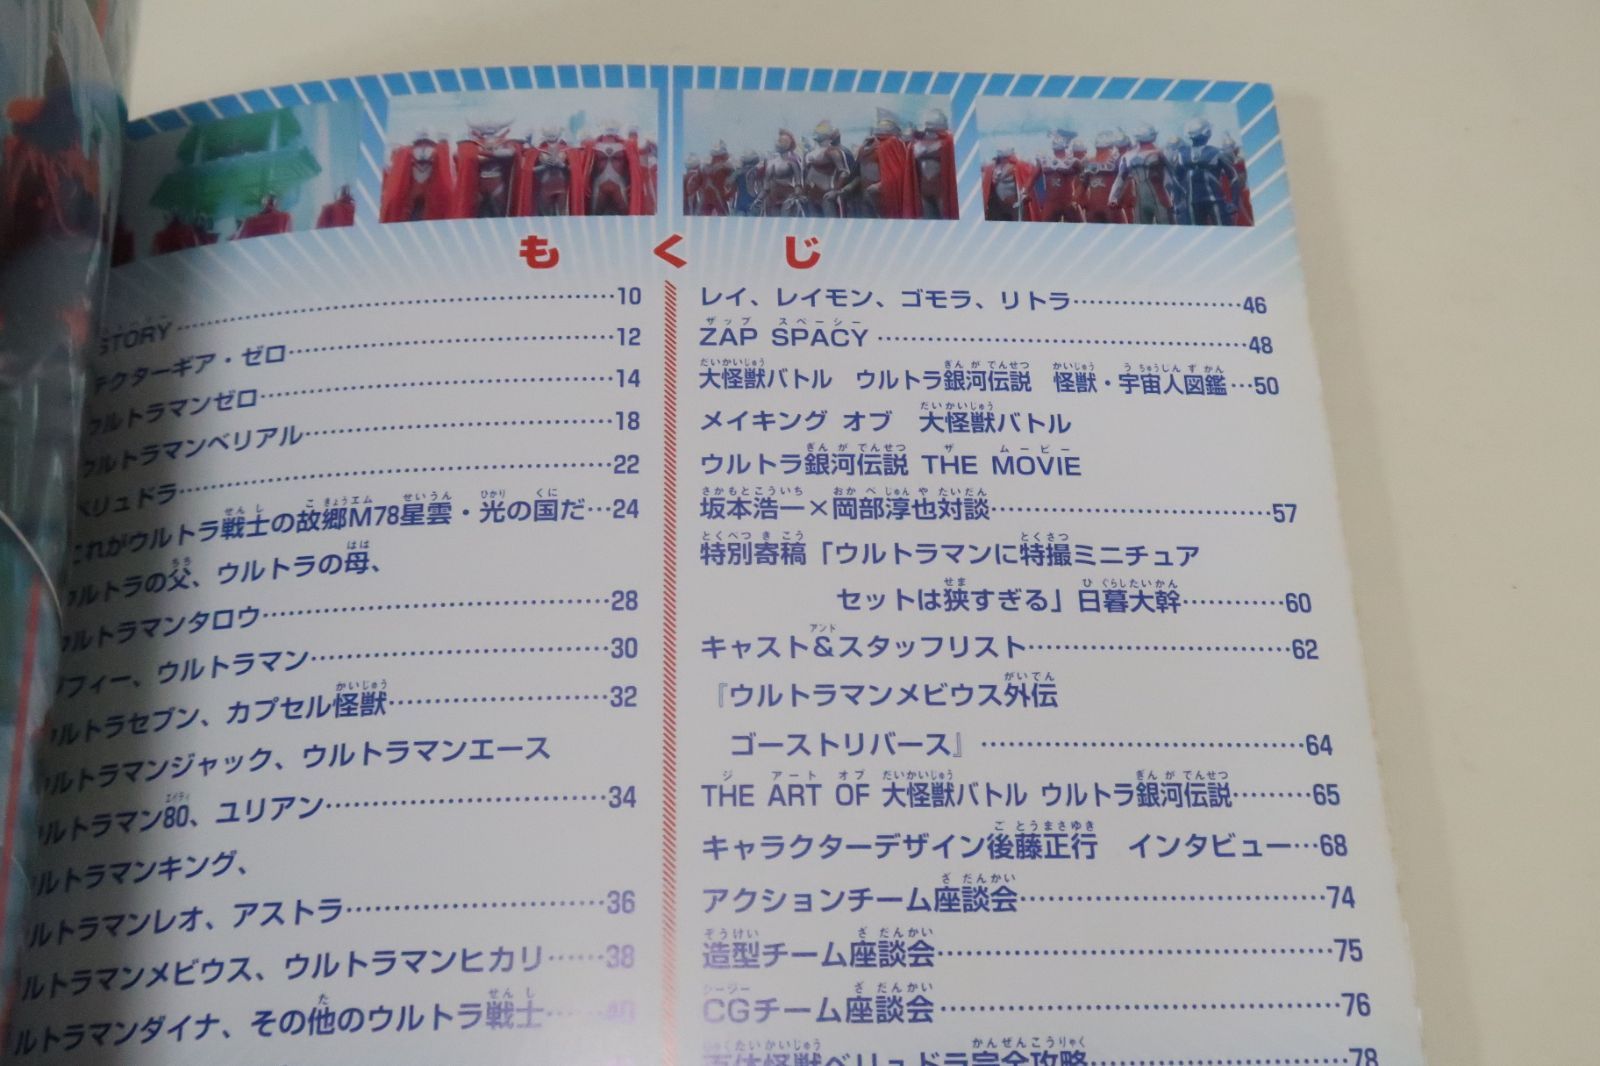 もくじ
STORY……10
テクターギア・ゼロ……12
ウルトラマンゼロ……14
ウルトラマンベリアル……18
ベリュドラ……22
これがウルトラ戦士の故郷M78星雲・光の国だ…24
ウルトラの父、ウルトラの母、
ウルトラマンタロウ……28
ゾフィー、ウルトラマン……30
ウルトラセブン、カプセル怪獣……32
ウルトラマンジャック、ウルトラマンエース
ウルトラマン80、ユリアン……34
ウルトラマンキング、
ウルトラマンレオ、アストラ……36
ウルトラマンメビウス、ウルトラマンヒカリ……38
ウルトラマンダイナ、その他のウルトラ戦士……40
レイ、レイモン、ゴモラ、リトラ……46
ZAP SPACY……48
大怪獣バトル ウルトラ銀河伝説 怪獣・宇宙人図鑑…50
メイキング オブ 大怪獣バトル
ウルトラ銀河伝説 THE MOVIE
坂本浩一×岡部淳也対談……57
特別寄稿「ウルトラマンに特撮ミニチュア
セットは狭すぎる」日暮大幹……60
キャスト&スタッフリスト……62
『ウルトラマンメビウス外伝
ゴーストリバース』……64
THE ART OF 大怪獣バトル ウルトラ銀河伝説……65
キャラクターデザイン後藤正行 インタビュー…68
アクションチーム座談会……74
造型チーム座談会……75
CGチーム座談会……76
百体怪獣ベリュドラ完全攻略……78